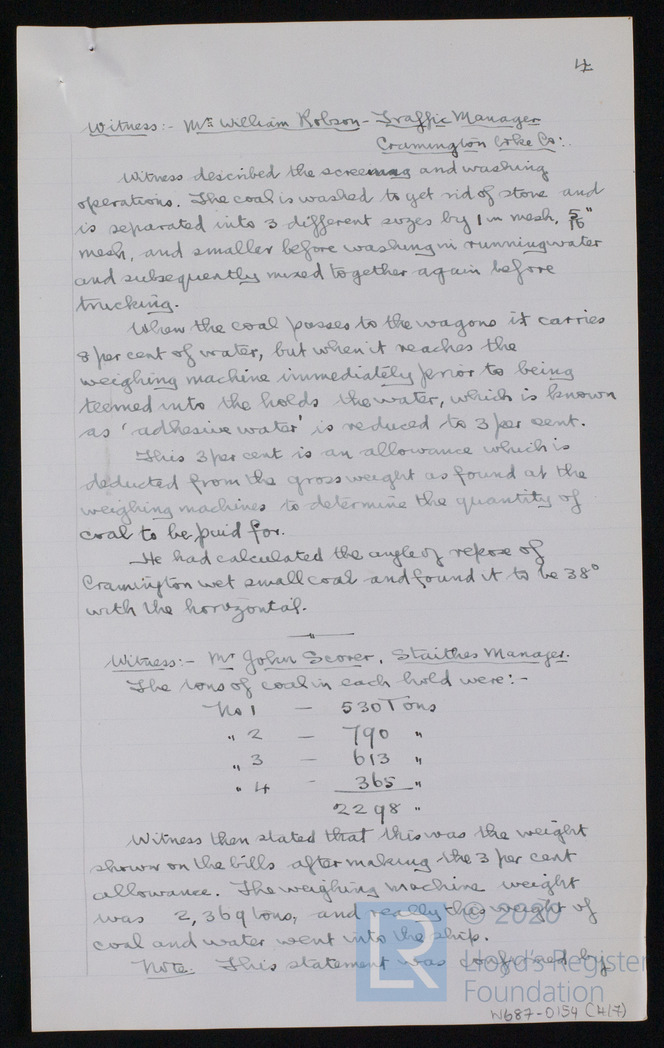 4
Witness:- Mr William Robson - Traffic Manager
Cramlington Coke Co:.
Witness described the screening and washing
operations. The coal is washed to get rid of stone and
is separated into 3 different sizes by 1 in mesh, 5/16"
mesh, and smaller before washing in running water
and subsequently mixed together again before
trucking.
When the coal passes to the wagons it carries
8 per cent of water, but when it reaches the
weighing machine immediately prior to being
teemed into the holds the water, which is known
as 'adhesive water' is reduced to 3 per cent.
This 3 per cent is an allowance which is
deducted from the gross weight as found at the
weighing machines to determine the quantity of
coal to be paid for.
He had calculated the angle of repose of
Cramlington wet small coal and found it to be 38°
with the horizontal.
Witness:- Mr John Scorer, Staithes Manager.
The tons of coal in each hold were:-
No 1 — 530 Tons
" 2 — 790 "
" 3 — 613 "
" 4 - 365 "
2298 "
Witness then stated that this was the weight
shown on the bills after making the 3 per cent
allowance. The weighing machine weight
was 2,369 tons, and really this weight of
coal and water went into the ship.
Note. This statement was confirmed by
LR © 2020
Lloyd's Register
Foundation
W687-0154 (4/7)